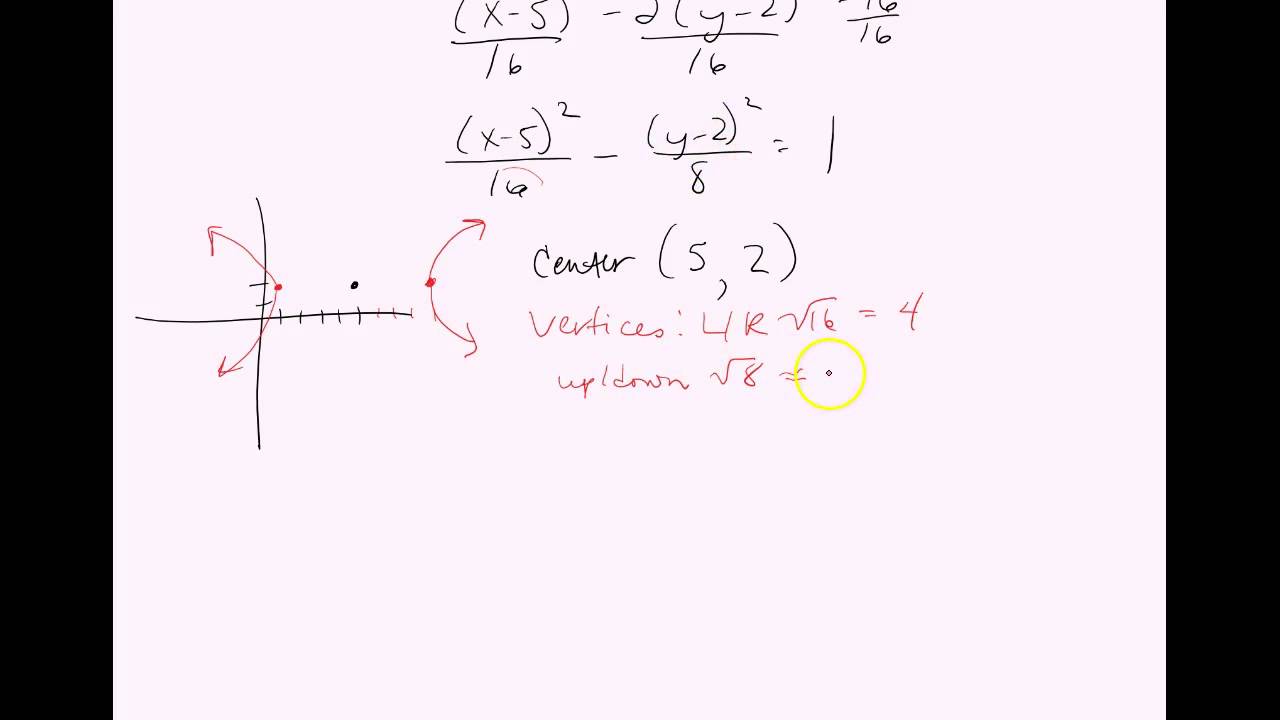 (x-5) - 2(y-2) = 16
16 16 16
(x-5)² - (y-2)² = 1
16 8
Center (5, 2)
Vertices: L/R √16 = 4
up/down √8 ≈